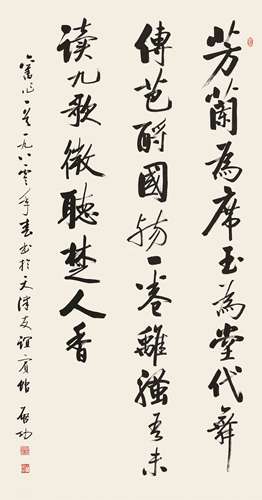 芳蘭為席玉為堂代舞
傳芭酹國殤一卷離騷吾未
读九歌微聽楚人香
舊作一首一九八零年春书於天津友誼賓館 啟功